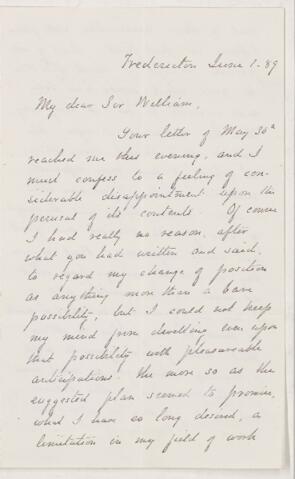 Fredericton June 1 - 89
My dear Sir William,
Your letter of May 30th
reached me this evening, and I
must confess to a feeling of con-
siderable disappointment upon the
perusal of its contents. Of course
I had really no reason, after
what you had written and said,
to regard my change of position
as anything more than a bare
possibility; but I could not keep
my mind from dwelling even upon
that possibility with pleasurable
anticipations. The more so as the
suggested plan seemed to promise,
what I have so long desired, a
limitation in my field of work